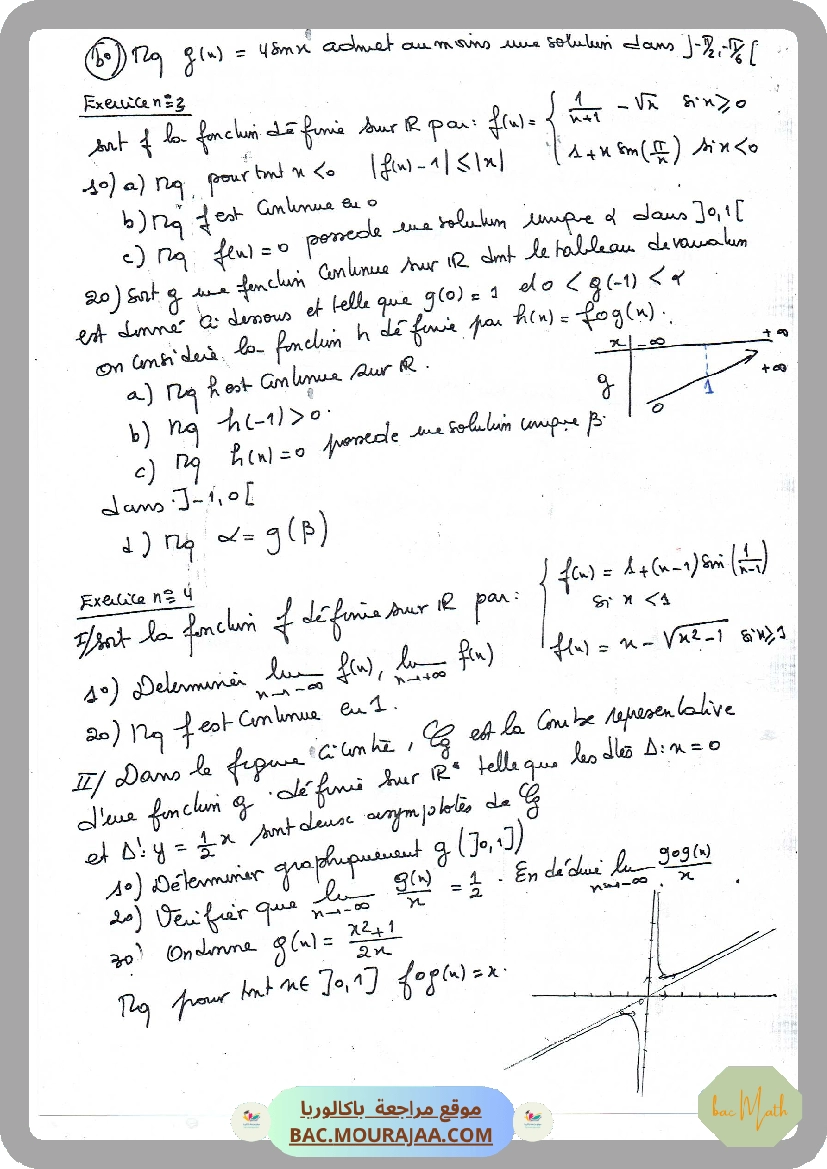 b°) Mq g(x) = 4sinx admet au moins une solution dans ]-π/2, -π/6[
Exercice n°3
soit f la fonction définie sur IR par : f(x) = { 1/(x+1) - √x si x ≥ 0
1 + x sin(π/x) si x < 0
1°) a) Mq pour tout x < 0 |f(x) - 1| ≤ |x|
b) Mq f est continue en 0
c) Mq f(x) = 0 possede une solution unique α dans ]0,1[
2°) Soit g une fonction continue sur IR dont le tableau de variation
est donné ci-dessous et telle que g(0) = 1 et 0 < g(-1) < α
on considère la fonction h définie par h(x) = fog(x).
x -∞ +∞
g 0 1 +∞
a) Mq h est continue sur IR.
b) Mq h(-1) > 0.
c) Mq h(x) = 0 possede une solution unique β
dans ]-1,0[
d) Mq α = g(β)
Exercice n°4
I/ Soit la fonction f définie sur IR par : { f(x) = 1 + (x-1) sin(1/(x-1))
si x < 1
f(x) = x - √(x²-1) si x ≥ 1
1°) Determiner lim x→-∞ f(x), lim x→+∞ f(x)
2°) Mq f est continue en 1.
II/ Dans le figure ci-contre, Cg est la Courbe representative
d'une fonction g définie sur IR* telle que les dtes Δ: x = 0
et Δ': y = 1/2 x sont deux asymptotes de Cg
1°) Déterminer graphiquement g(]0,1])
2°) Vérifier que lim x→-∞ g(x)/x = 1/2 . En déduire lim x→-∞ gog(x)/x .
3°) On donne g(x) = (x²+1)/2x
Mq pour tout x∈ ]0,1] fog(x) = x.
0
موقع مراجعة باكالوريا
BAC.MOURAJAA.COM
bac Math